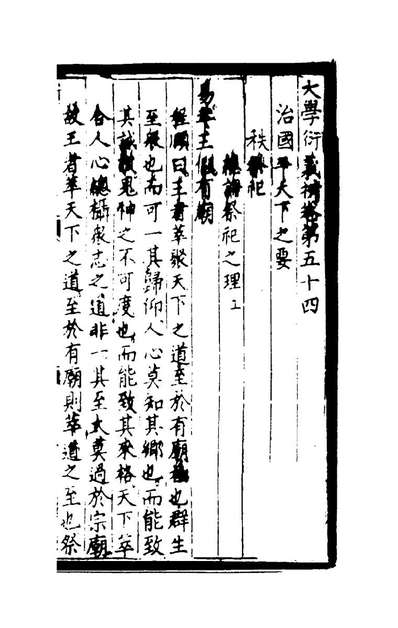 大學衍義補卷第五十四
治國平天下之要
秩祭祀
總論祭祀之理上
易萃王假有廟
程頤曰王者萃聚天下之道至於有廟極也群生
至衆也而可一其歸仰人心莫知其鄉也而能致
其誠敬鬼神之不可度也而能致其來格天下萃
合人心總攝衆志之道非一其至大莫過於宗廟
故王者萃天下之道至於有廟則萃道之至也祭